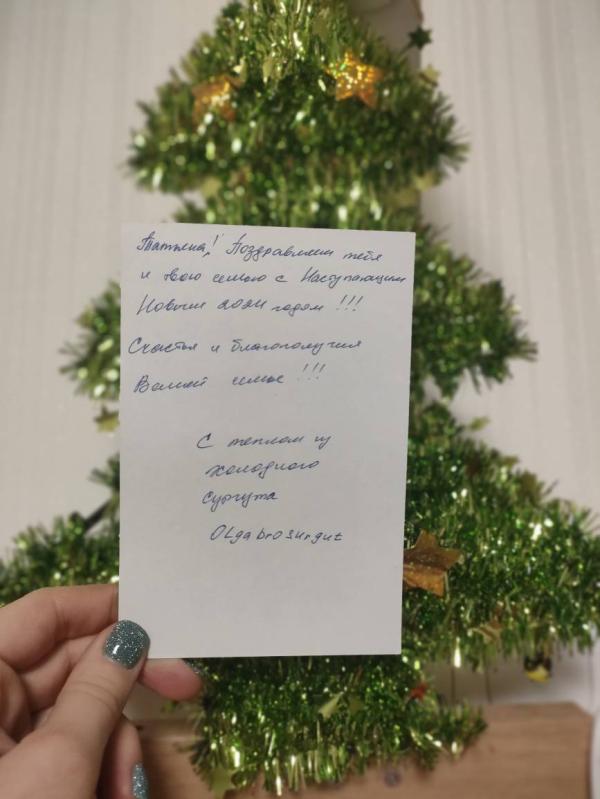 Татьяна! Поздравляем тебя
и твою семью с Наступающим
Новым 2021 годом !!!
Счастья и благополучия
Вашей семье !!!
С теплом из
холодного
Сургута
Olgabrosurgut